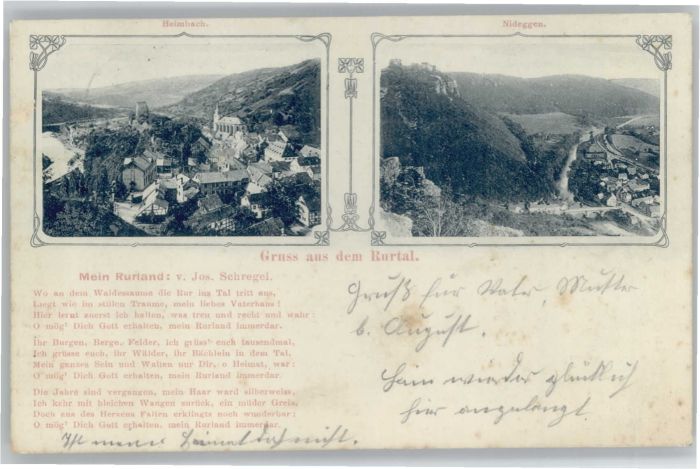 Heimbach.
Nideggen.
Gruss aus dem Rurtal.
Mein Rurland: v. Jos. Schregel.
Wo an dem Waldessaume die Rur ins Tal tritt aus,
Liegt wie im stillen Traume, mein liebes Vaterhaus!
Hier lernt zuerst ich halten, was treu und recht und wahr:
O mög' Dich Gott erhalten, mein Rurland immerdar.
Ihr Burgen, Berge, Felder, ich grüss' euch tausendmal,
Ich grüsse euch, ihr Wälder, ihr Bächlein in dem Tal,
Mein ganzes Sein und Walten nur Dir, o Heimat, war:
O mög' Dich Gott erhalten, mein Rurland immerdar.
Die Jahre sind vergangen, mein Haar ward silberweiss,
Ich kehr mit bleichen Wangen zurück, ein müder Greis,
Doch aus des Herzens Falten erklingts noch wunderbar:
O mög' Dich Gott erhalten, mein Rurland immerdar.
Gruß für Vater, Mutter
August.
wieder glücklich
hier angelangt.
Ist meine Heimat das nicht.